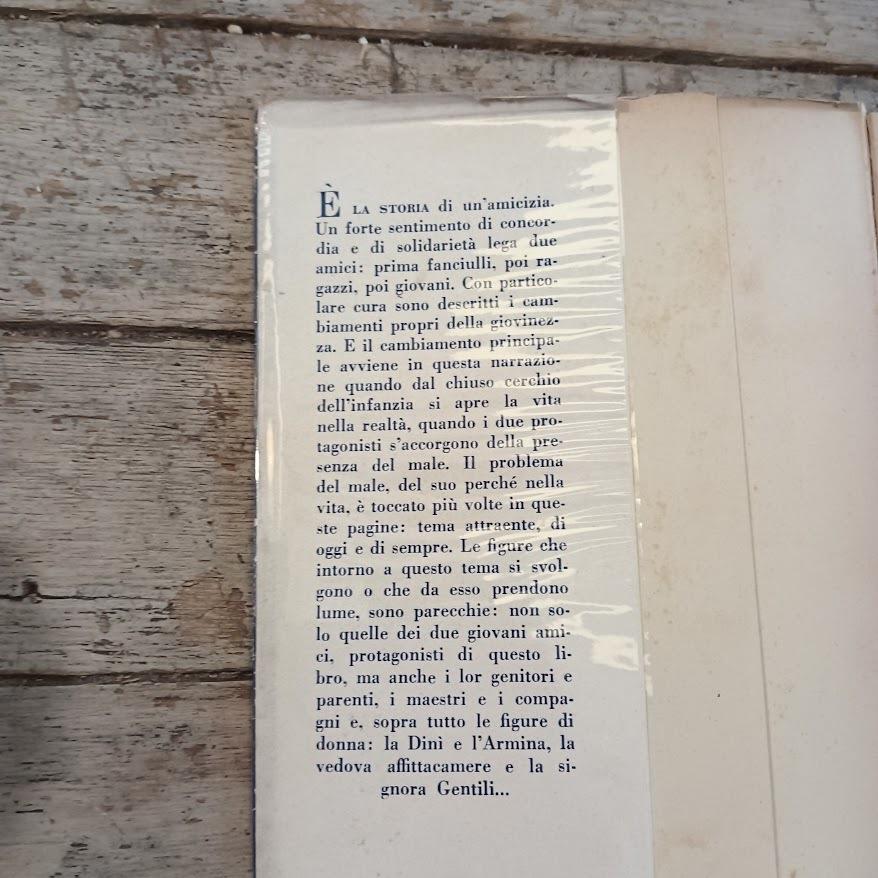 È LA STORIA di un'amicizia.
Un forte sentimento di concor-
dia e di solidarietà lega due
amici: prima fanciulli, poi ra-
gazzi, poi giovani. Con partico-
lare cura sono descritti i cam-
biamenti propri della giovinez-
za. E il cambiamento principa-
le avviene in questa narrazio-
ne quando dal chiuso cerchio
dell'infanzia si apre la vita
nella realtà, quando i due pro-
tagonisti s'accorgono della pre-
senza del male. Il problema
del male, del suo perché nella
vita, è toccato più volte in que-
ste pagine: tema attraente, di
oggi e di sempre. Le figure che
intorno a questo tema si svol-
gono o che da esso prendono
lume, sono parecchie: non so-
lo quelle dei due giovani ami-
ci, protagonisti di questo li-
bro, ma anche i lor genitori e
parenti, i maestri e i compa-
gni e, sopra tutto le figure di
donna: la Dinì e l'Armina, la
vedova affittacamere e la si-
gnora Gentili...